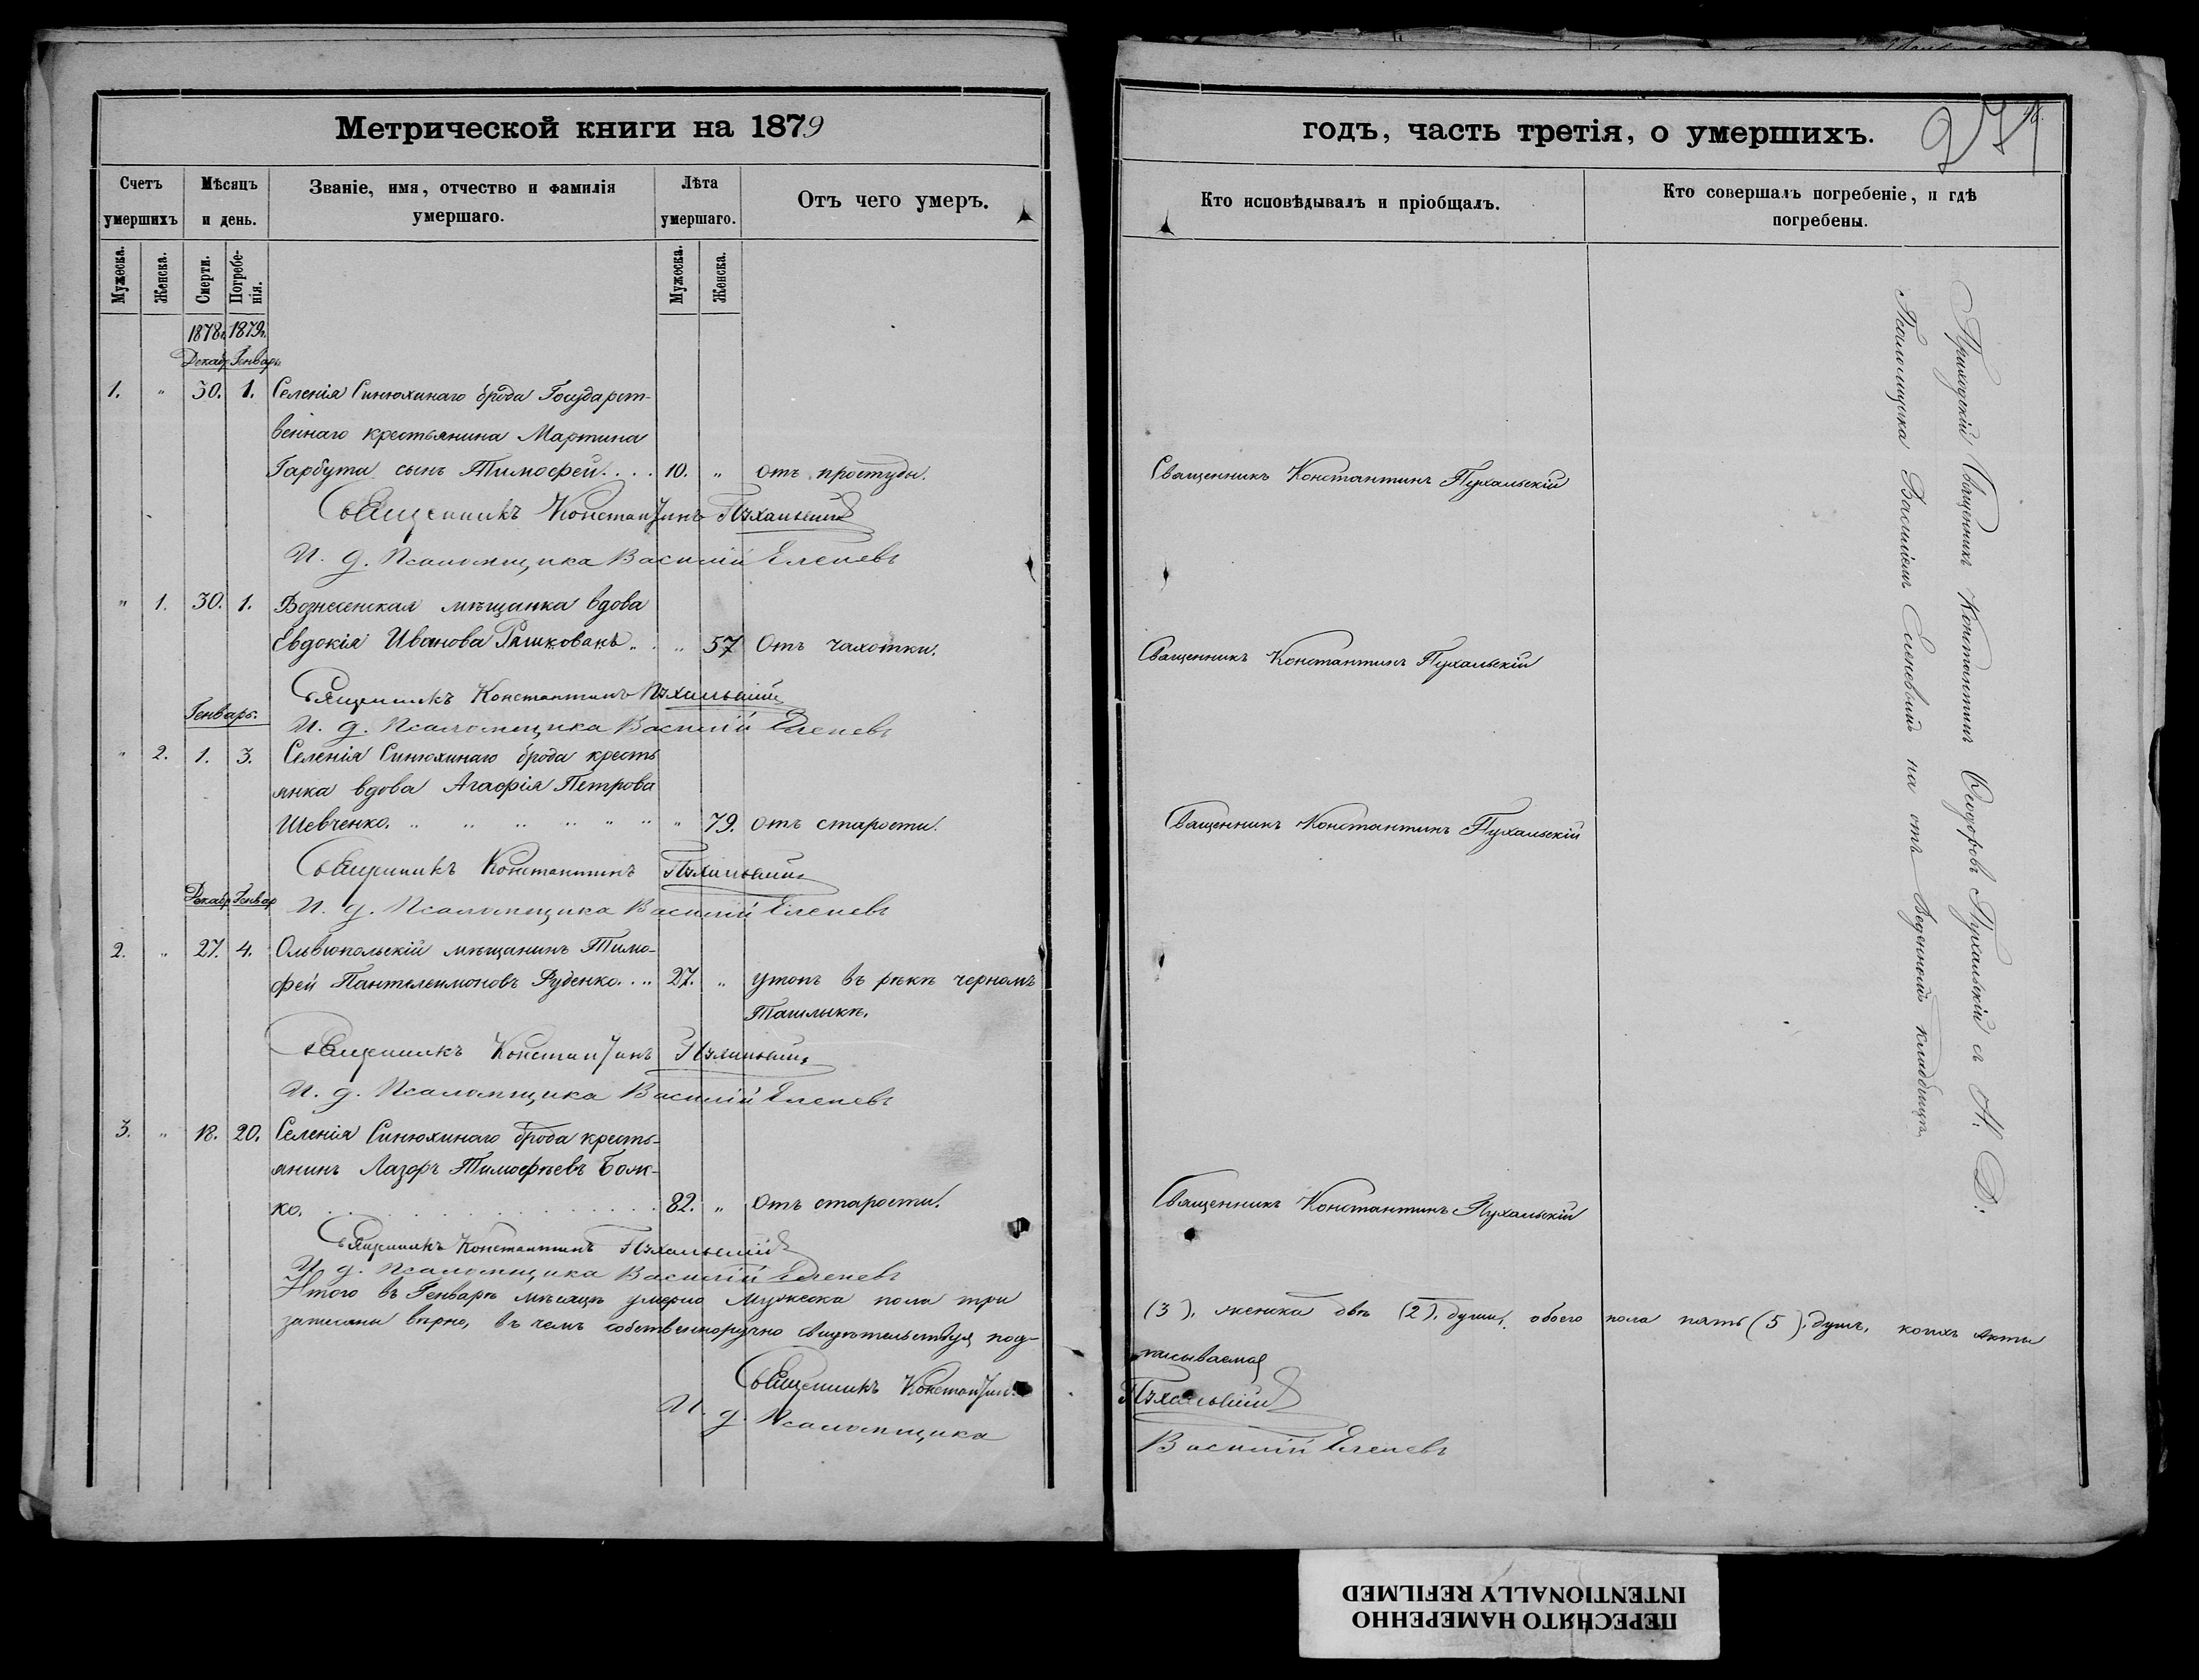 Метрической книги на 1879
Счетъ умершихъ
Мѣсяцъ и день.
Званіе, имя, отчество и фамилія умершаго.
Лѣта умершаго.
Отъ чего умеръ.
Мужеска.
Женска.
Смерти.
Погребенія.
Мужеска.
Женска.
1878г. 1879г.
Декабр. Генварь
1. " 30. 1. Селенія Синюхинаго брода Государст-
веннаго крестьянина Мартина
Гарбута сынъ Тимофей.... 10. " отъ простуды.
Священникъ Константинъ Пухальскій
И. д. Псаломщика Василій Еленевъ
" 1. 30. 1. Вознесенская мѣщанка вдова
Евдокія Иванова Рашкованъ.. " 57 Отъ чахотки.
Священникъ Константинъ Пухальскій
Генварь.
И. д. Псаломщика Василій Еленевъ
" 2. 1. 3. Селенія Синюхинаго брода кресть
янка вдова Агафія Петрова
Шевченко. " " " " " " " 79. отъ старости.
Священникъ Константинъ Пухальскій
Декабр Генвар
И. д. Псаломщика Василій Еленевъ
2. " 27. 4. Ольвіопольскій мѣщанинъ Тимо-
фей Пантелеимоновъ Руденко... 27. " утопъ въ рѣкѣ черномъ
Ташлыкѣ.
Священникъ Константинъ Пухальскій
И. д. Псаломщика Василій Еленевъ
3. " 18. 20. Селенія Синюхинаго брода кресть-
янинъ Лазорь Тимофѣевъ Бож-
ко. 82. " Отъ старости.
Священникъ Константинъ Пухальскій
И. д. Псаломщика Василій Еленевъ
Итого въ Генварѣ мѣсяцѣ умерло Мужеска пола три
записаны вѣрно, въ чемъ собственноручно свидѣтельствуя под-
Священникъ Константинъ
И. д. Псаломщика
годъ, часть третія, о умершихъ.
Кто исповѣдывалъ и пріобщалъ.
Кто совершалъ погребеніе, и гдѣ погребены.
Священникъ Константинъ Пухальскій
Священникъ Константинъ Пухальскій
Священникъ Константинъ Пухальскій
Священникъ Константинъ Пухальскій
Приходскій Священникъ Константинъ Ѳеодоровъ Пухальскій съ И. Д:
Псаломщика Василіемъ Еленевымъ на отъ веденномъ кладбищѣ
(3). женска двѣ (2). души, обоего пола пять (5). душъ, коихъ Акты
писываемся
Пухальскій
Василій Еленевъ
ПЕРЕСНЯТО НАМЕРЕННО
INTENTIONALLY REFILMED